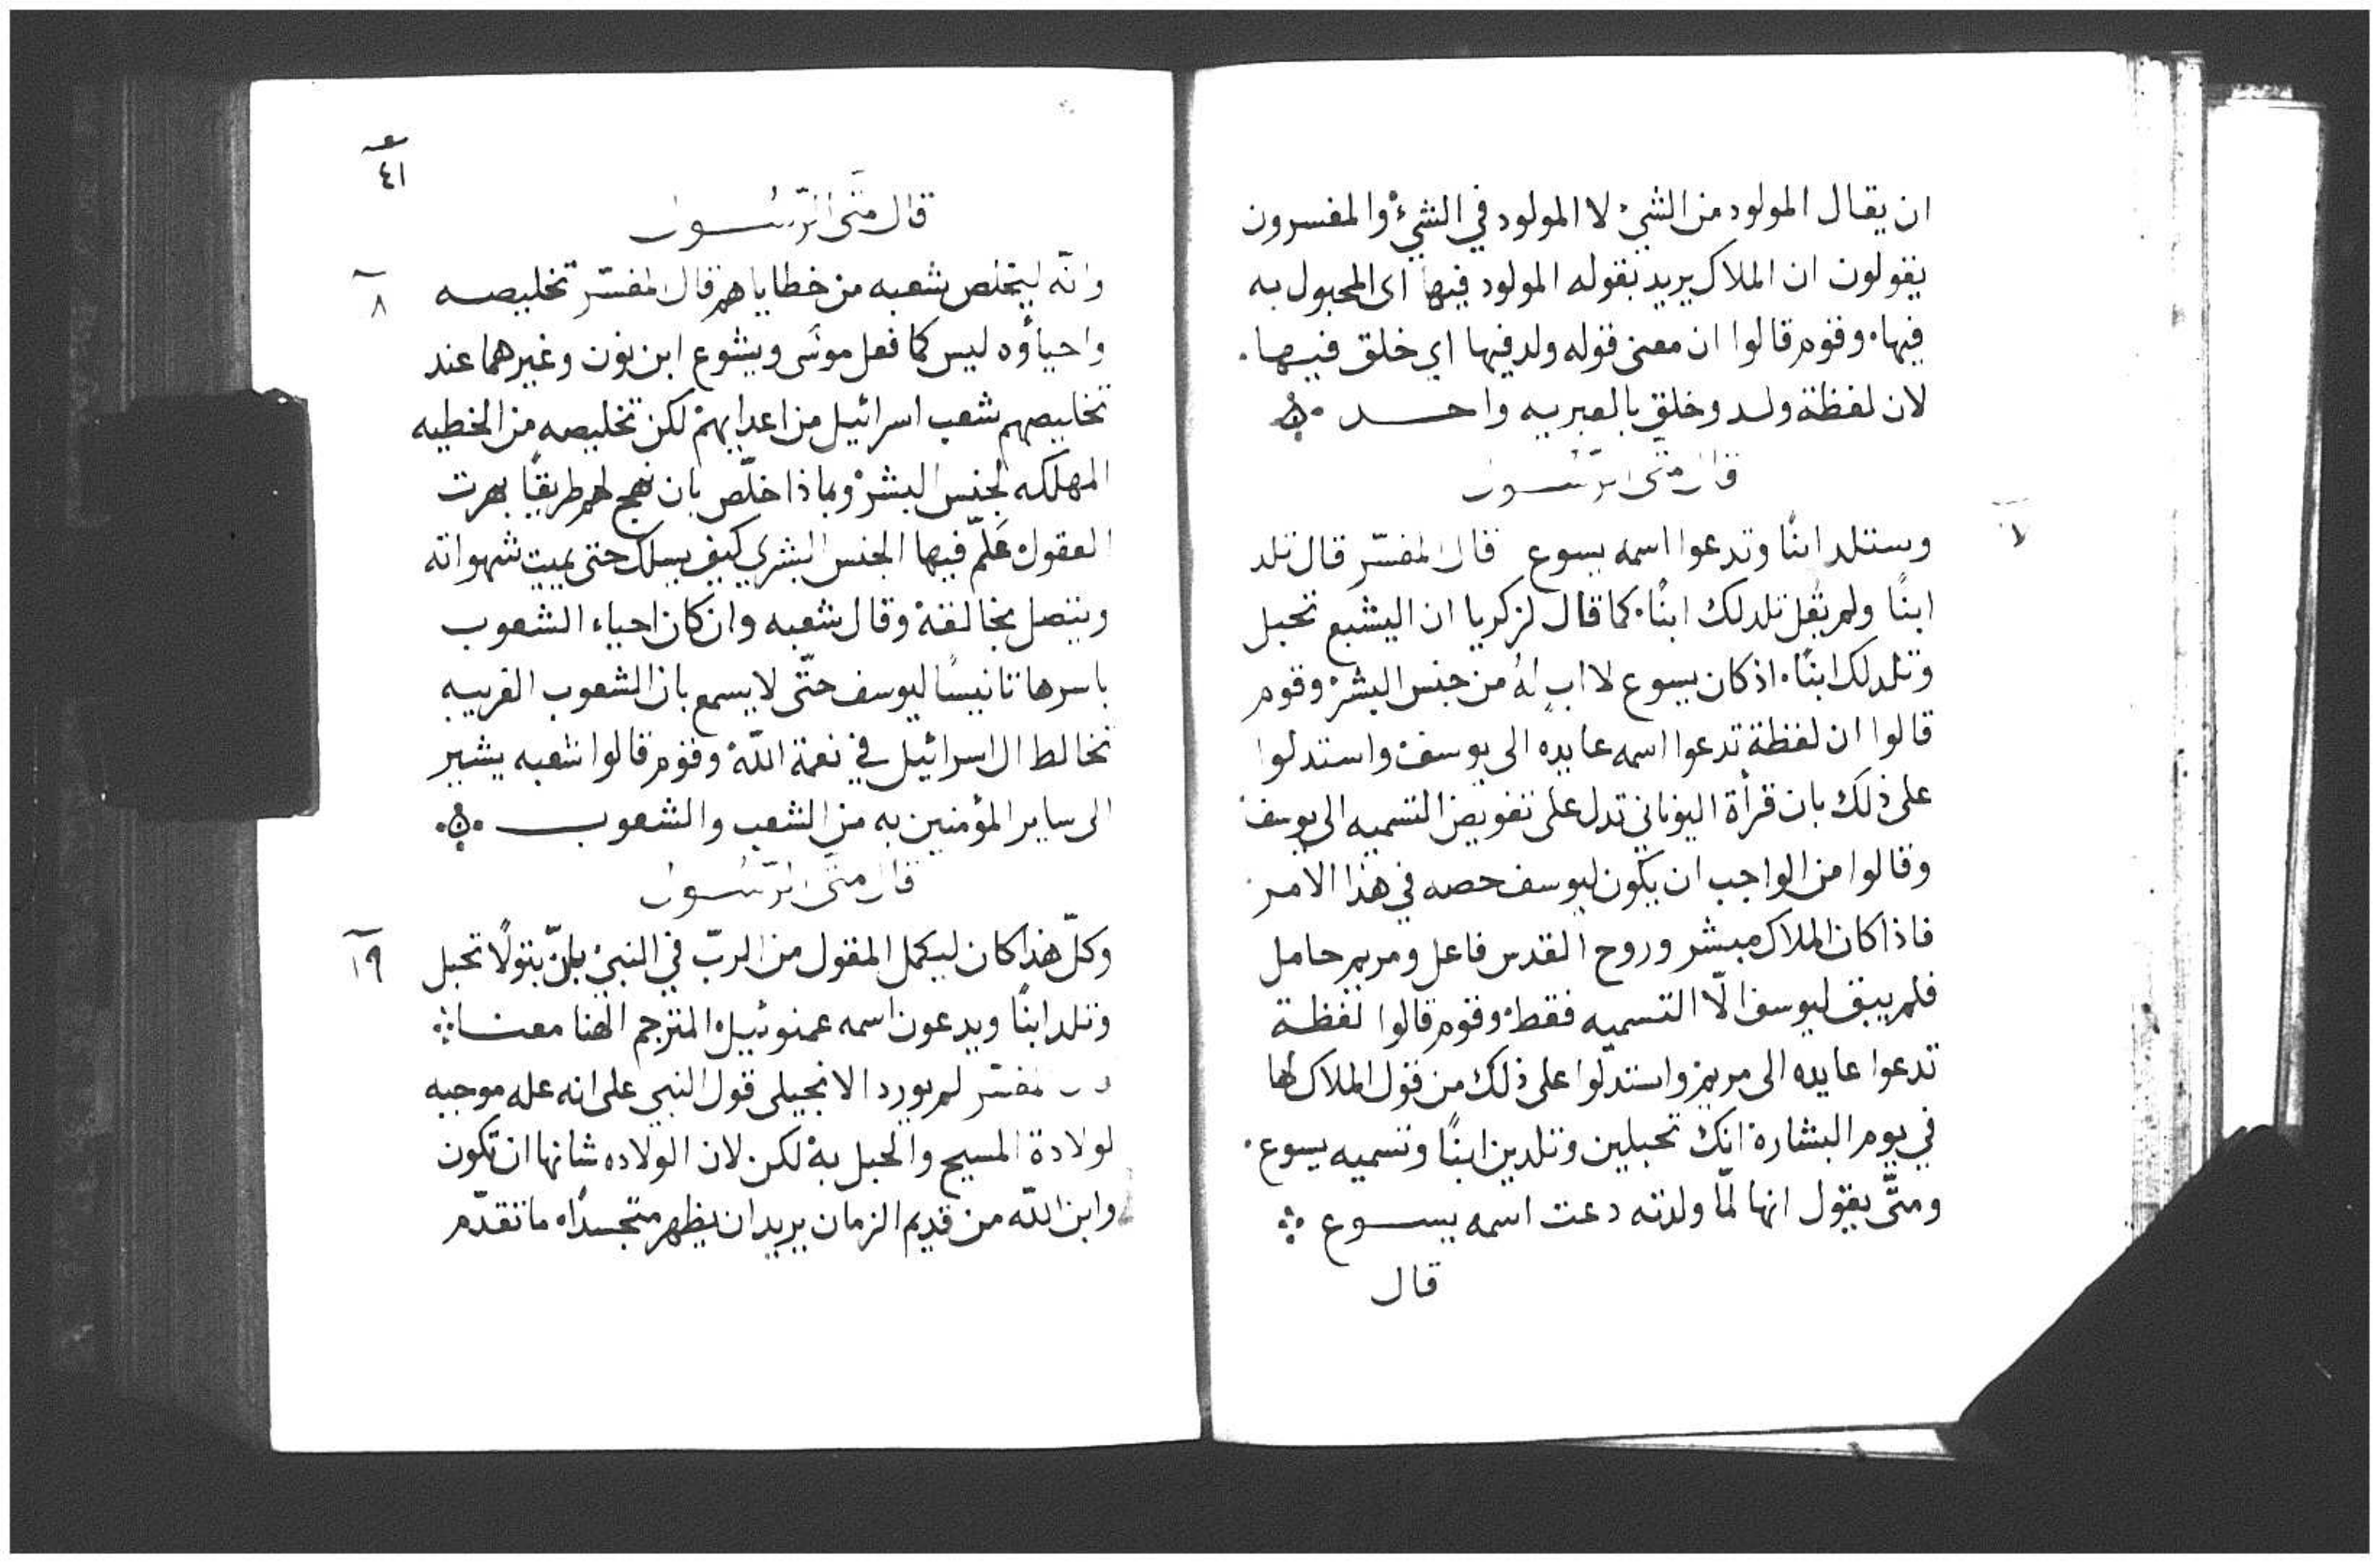 ان يقال المولود من الشيء لا المولود في الشيء والمفسرون
يقولون ان الملاك يريد بقوله المولود فيها اى المحبول به
فيها. وقوم قالوا ان معنى قوله ولد فيها اي خلق فيها.
لان لفظة ولد وخلق بالعبريه واحد
قال متى الرسول
وستلد ابنًا وتدعوا اسمه يسوع قال المفسّر قال تلد
ابنًا ولم يقل تلد لك ابنًا. كما قال لزكريا ان اليشبع تحبل
وتلد لك ابنًا. اذ كان يسوع لا ابٍ لهُ من جنس البشر وقوم
قالوا ان لفظة تدعوا اسمه عايده الى يوسف واستدلوا
على ذلك بان قرأة اليوناني تدل على تفويض التسميه الى يوسف
وقالوا من الواجب ان يكون ليوسف حصه في هذا الامر
فاذا كان الملاك مبشر وروح القدس فاعل ومريم حامل
فلم يبق ليوسف الّا التسميه فقط وقوم قالوا لفظة
تدعوا عايده الى مريم واستدلّوا على ذلك من قول الملاك لها
في يوم البشارة انك تحبلين وتلدين ابنًا وتسميه يسوع.
ومتَّى يقول انها لمّا ولدته دعت اسمه يسوع
قال
٤١
قال متَّى الرّسُول
وانّه ليخلص شعبه من خطاياهم قال المفسّر تخليصه
٨
واحياؤه ليس كما فعل موسَى ويشوع ابن نون وغيرهما عند
تخليصهم شعب اسرائيل من اعدايهم لكن تخليصه من الخطيه
المهلكه لجنس البشر وبماذا خلّص بان نهج لهم طريقًا بهرت
العقول عَلّم فيها الجنس البشري كيف يسلك حتى يميت شهواته
ويتصل بخالقه وقال شعبه وان كان احياء الشعوب
باسرها تانيسًا ليوسف حتّى لا يسمع بان الشعوب الغريبه
تخالط ال اسرائيل في نعمة اللّه وقوم قالوا شعبه يشير
الى ساير المؤمنين به من الشعب والشعوب
قال متَّى الرّسُول
وكلّ هذا كان ليكمل المقول من الربّ في النبي بانّ بتولًا تحبل
١٩
وتلد ابنًا ويدعون اسمه عمنوئيل المترجم الهنا معنا
المفسّر لم يورد الانجيلى قول النبي على انه عله موجبه
لولادة المسيح والحبل به لكن لان الولاده شانها ان تكون
وابن اللّه من قديم الزمان يريد ان يظهر متجسدًا ما تقدّم